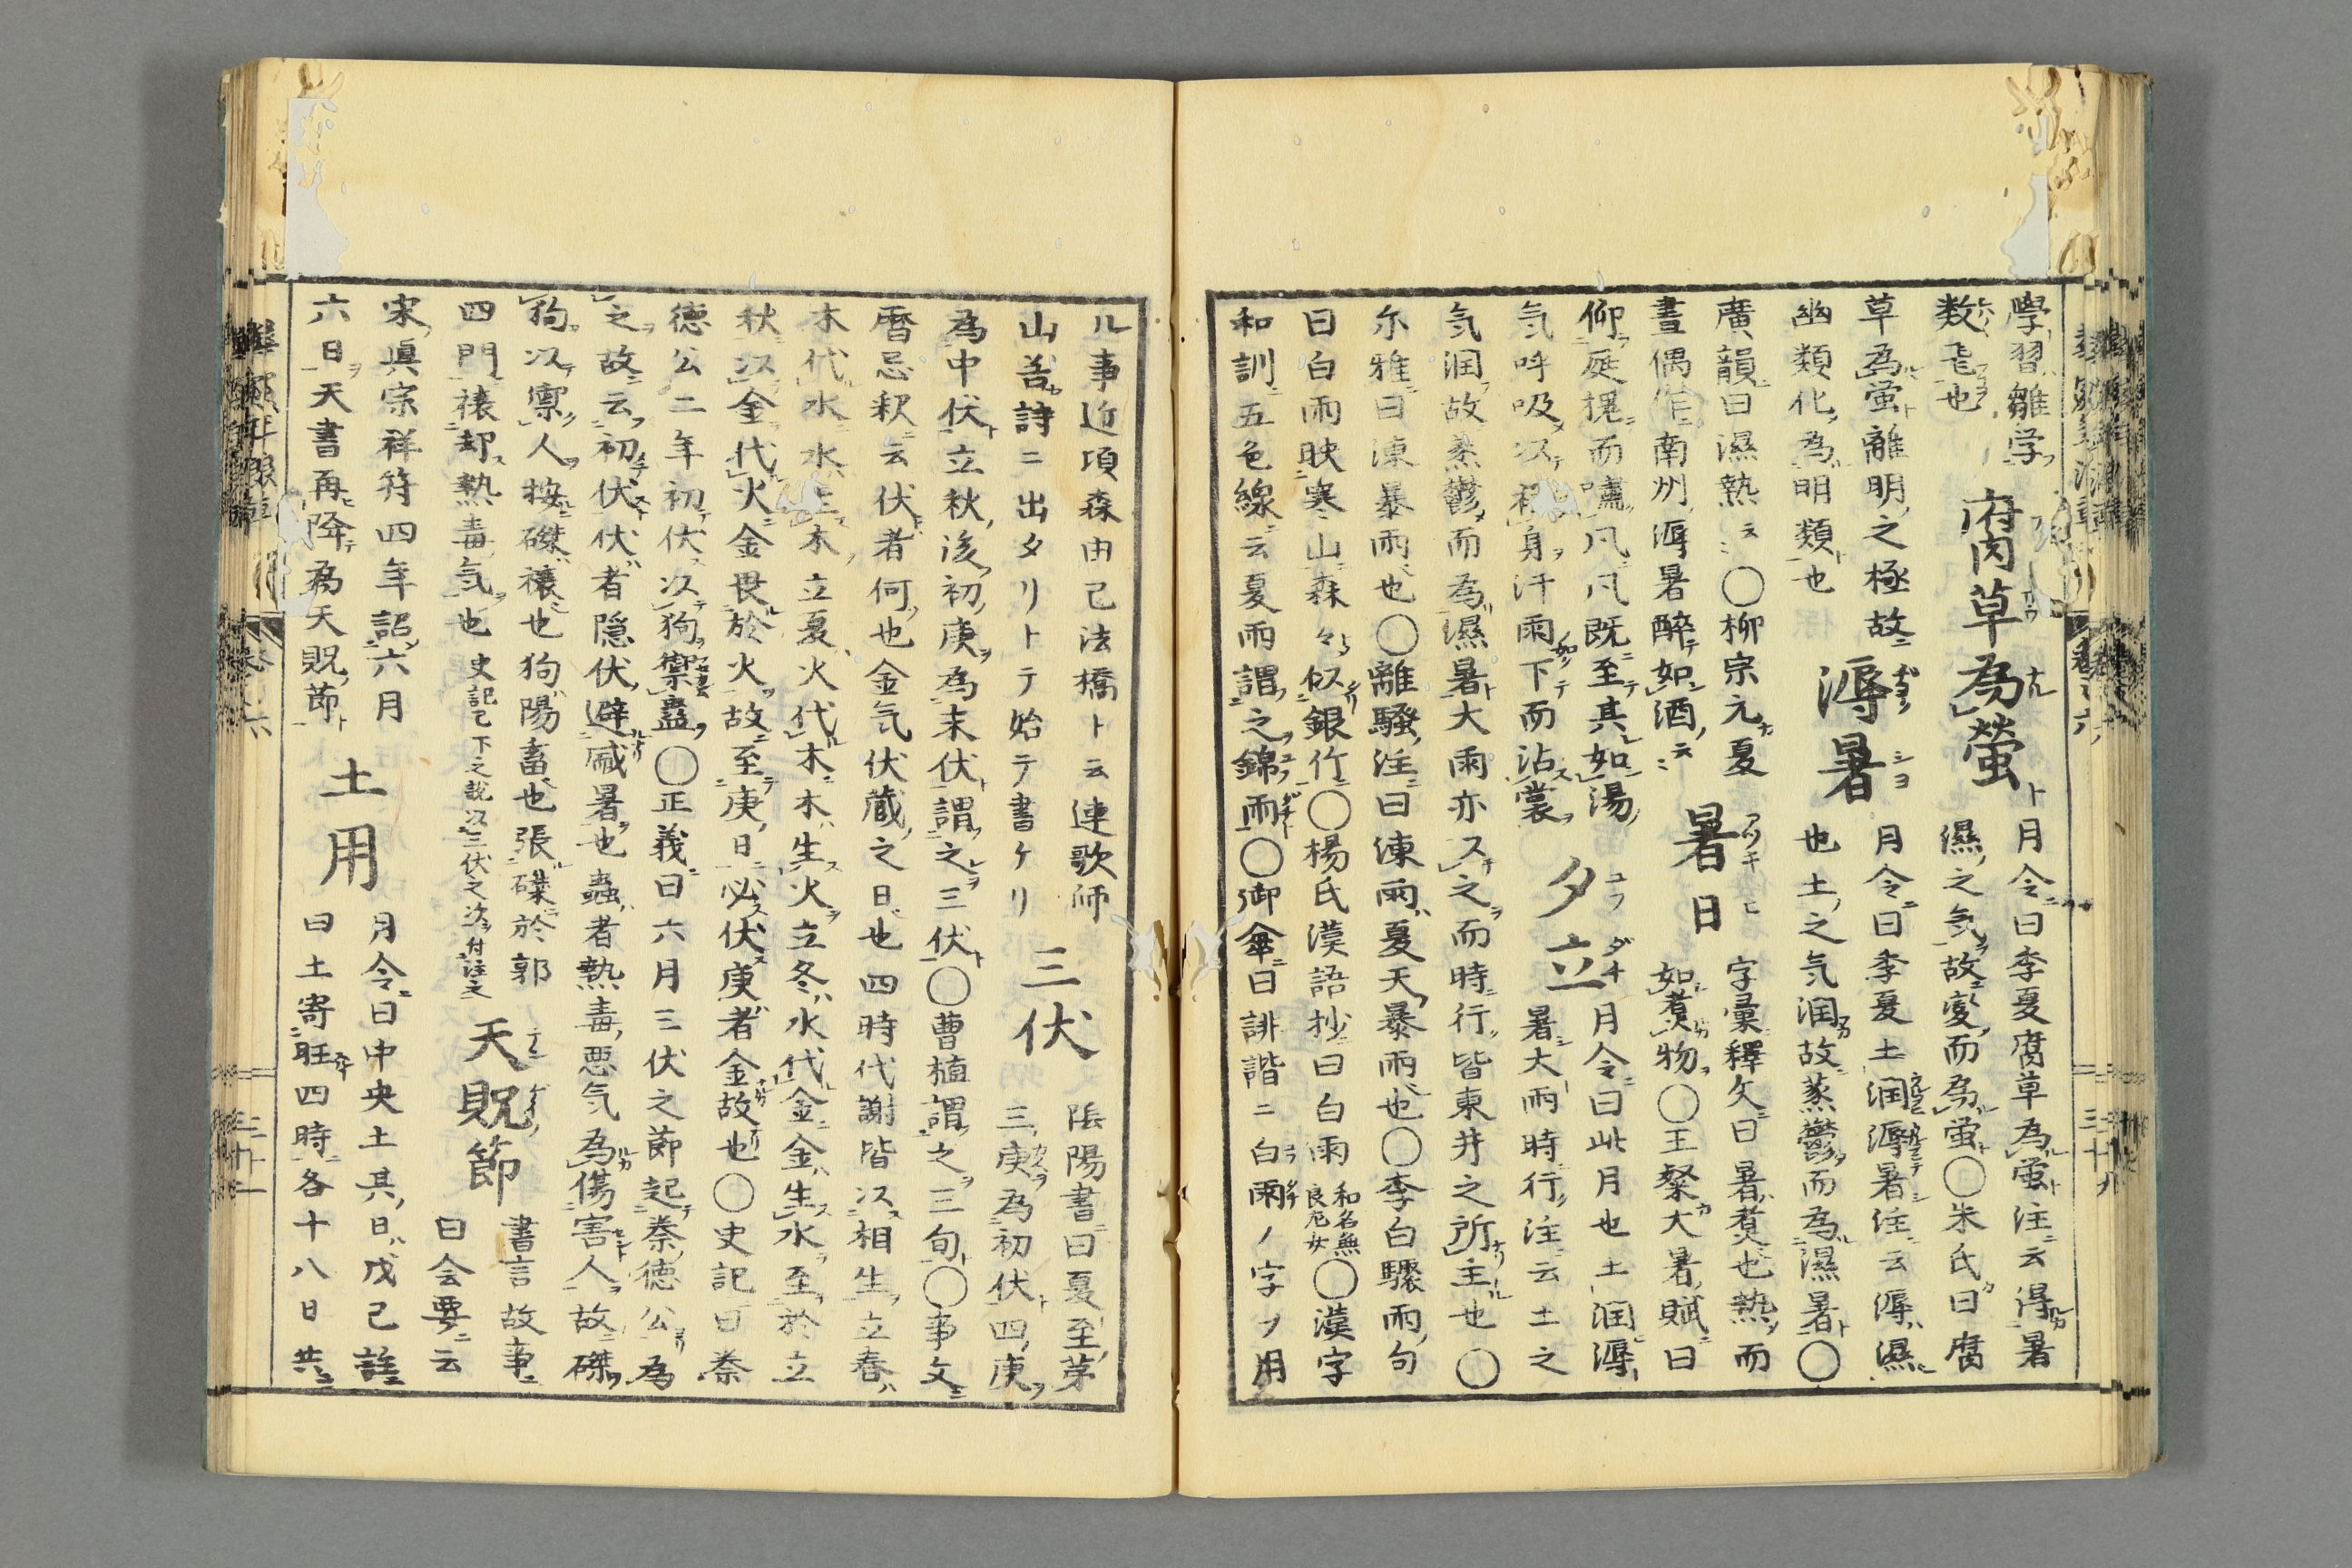 學習雛学
数飛也
腐草為螢
月令曰季夏腐草為蛍注云得暑
濕之気故変而為蛍〇朱氏曰腐
草為蛍離明之極故
幽類化為明類也
溽暑
月令曰季夏土润溽暑注云溽濕
也土之气润故蒸鬱而為濕暑〇
廣韻曰濕熱云〻〇柳宗元夏
晝偶作南州溽暑醉如酒云〻
暑日
字彙釋文曰暑煮也熱而
如煮物〇王粲大暑賦曰
仰庭槐而嘯凡凡既至其如湯
気呼吸以祛身汗雨下而沾裳
夕立
月令曰此月也土润溽
暑大雨時行注云土之
气润故蒸鬱而為濕暑大雨亦之而時行皆東井之所主也〇
尓雅曰涷暴雨也〇離騷注曰涷雨夏天暴雨也〇李白驟雨句
曰白雨映寒山森々似銀竹〇楊氏漢語抄曰白雨和名無良左女〇漢字
和訓五色線云夏雨謂之錦雨〇御傘曰誹諧ニ白雨ノ字ヲ用
ル事近項森由己法橋ト云連歌师
山善詩ニ出タリトテ始テ書ケリ
三伏
陰陽書曰夏至第
三庚為初伏四庚
為中伏立秋後初庚為末伏謂之三伏〇曹植謂之三旬〇事文
暦忌釈云伏者何也金気伏蔵之日也四時代謝皆以相生立春
木代水水生木立夏火代木木生火立冬水代金金生水至於立
秋以金代火金畏於火故至庚日必伏庚者金故也〇史記曰秦
德公二年初伏以狗禦蠱〇正義曰六月三伏之節起秦德公為
之故云初伏伏者隠伏避盛暑也蟲者熱毒悪气為傷害人故磔
狗以禦人按磔禳也狗陽畜也張磔於郭
四門禳却熱毒気也史記已下之説以三伏之次付注之
天貺節
書言故事
曰会要云
宋真宗祥符四年詔六月
六日天書再降為天貺節
土用
月令曰中央土其日戊己註
曰土寄旺四時各十八日共
巻之六
三十九